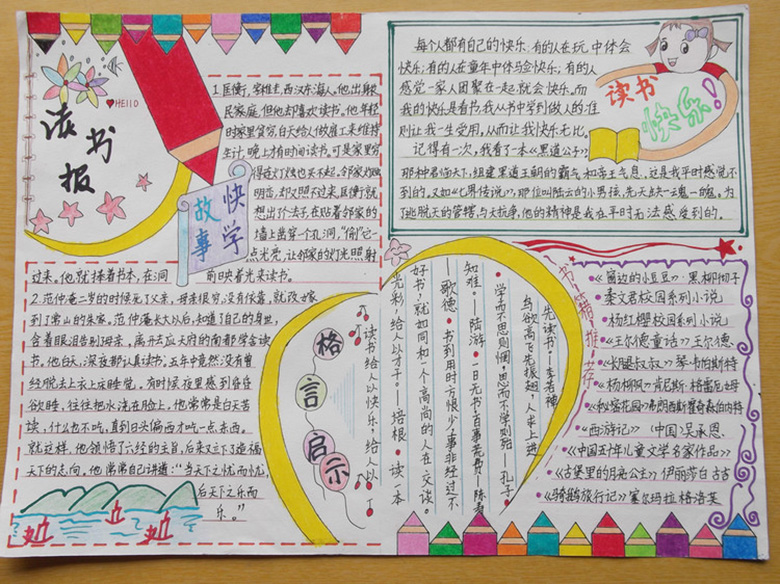 读书报
HEllO
快学
故事
1.匡衡,字稚圭,西汉东海人。他出身农
民家庭,但他去喜欢读书。他年轻
时家里贫穷,白天给人做雇工来维持
生计,晚上才有时间读书。可是家里穷
得连灯烛也买不起。邻家灯烛
明亮,却又照不过来,匡衡就
想出个法子,在贴着邻家的
墙上凿穿一个孔洞,“偷”它一
点光亮,让邻家的灯光照射
过来。他就捧着书本,在洞
前映着光来读书。
2.范仲淹二岁的时候死了父亲,母亲很穷,没有依靠,就改嫁
到了常山的朱家。范仲淹长大以后,知道了自己的身世,
含着眼泪告别母亲,离开去应天府的南都学舍读
书。他白天,深夜都认真读书。五年中竟然没有曾
经脱去上衣上床睡觉,有时候夜里感到昏昏
欲睡,往往把水浇在脸上。他常常是白天苦
读,什么也不吃,直到日头偏西才吃一点东西。
就这样,他领悟了六经的主旨,后来又立下了造福
天下的志向。他常常自己讲道:“当先天下之忧而忧,
后天下之乐而
乐。”
每个人都有自己的快乐:有的人在玩中体会
快乐;有的人在童年中体验快乐,有的人
感觉一家人团聚在一起就会快乐。而
我的快乐是看书,我从书中学到做人的准
则让我一生受用,从而让我快乐无比。
记得有一次,我看了一本《黑道公子》
那种君临天下,组建黑道王朝的霸气和帝王气息,这是我平时感觉不
到的,又如《七界传说》,那位叫陆云的小男孩,先天缺一魂一魄。为
了逃脱天的管辖,与天抗争,他的精神是我在平时无法感受到的。
读书
快乐!
格言启示
先读书。——李若禅
鸟欲高飞先振翅,人求上进
学而不思则惘,思而不学则殆——孔子
知难。——陆游 一日无书百事荒废——陈寿
——歌德 书到用时方恨少,事非经过不
好书,就如同和一个高尚的人在交谈。
光彩,给人以才干。——培根 读一本
读书给人以快乐,给人以
书籍推荐
《窗边的小豆豆》黑柳彻子
秦文君校园系列小说
杨红樱校园系列小说
《王尔德童话》王尔德
《长腿叔叔》琴·韦伯斯特
《杨柳风》肯尼斯·格雷厄姆
《秘密花园》弗朗西斯霍奇森伯内特
《西游记》(中国)吴承恩
《中国五十年儿童文学名家作品》
《古堡里的月亮公主》伊丽莎白 古吉
《骑鹅旅行记》塞尔玛拉格洛芙